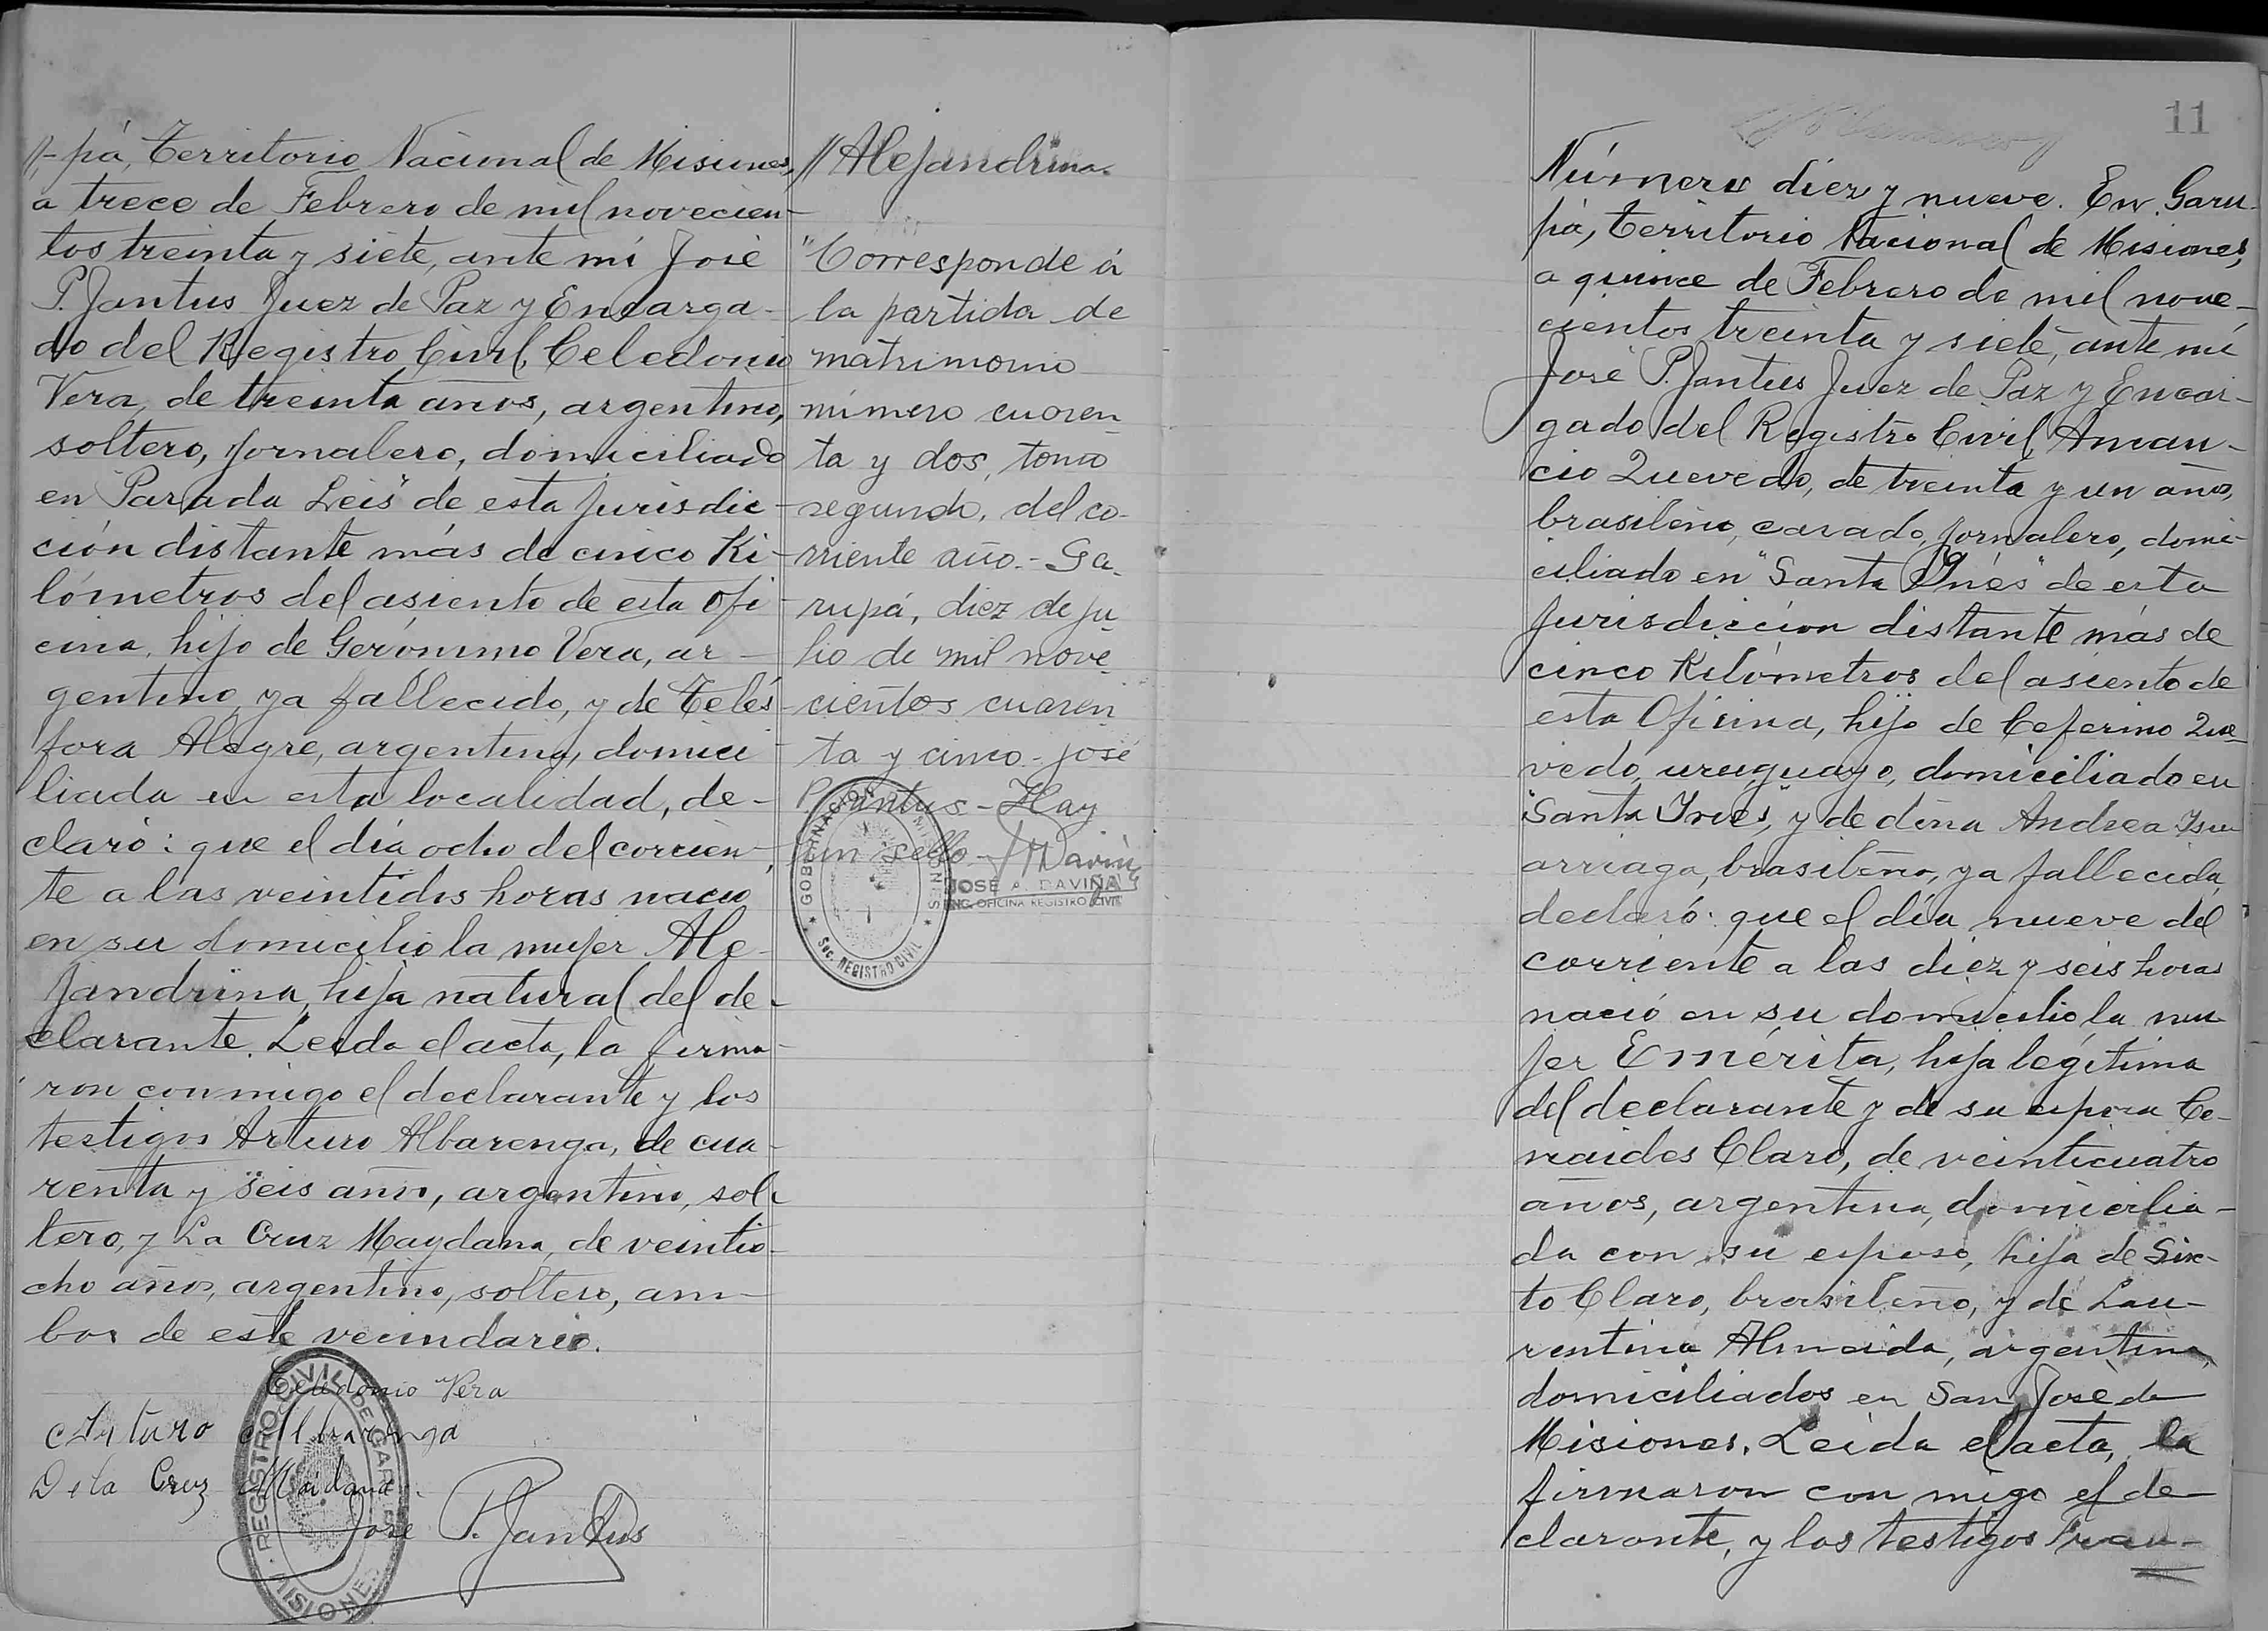 //-pá, Territorio Nacional de Misiones,
a trece de Febrero de mil novecien-
tos treinta y siete, ante mí José
P. Jantus Juez de Paz y Encarga-
do del Registro Civil, Celedonio
Vera, de treinta años, argentino,
soltero, jornalero, domiciliado
en "Parada Leis" de esta jurisdic-
ción distante más de cinco Ki-
lómetros del asiento de esta Ofi-
cina, hijo de Gerónimo Vera, ar-
gentino, ya fallecido, y de Telés-
fora Alegre, argentina, domici-
liada en esta localidad, de-
claró: que el día ocho del corrien-
te a las veintidos horas nació
en su domicilio la mujer Ale-
jandrina, hija natural del de-
clarante. Leida el acta, la firma-
ron conmigo el declarante y los
testigos Arturo Albarenga, de cua-
renta y seis años, argentino, sol-
tero, y La Cruz Maydana, de veintio-
cho años, argentino, soltero, am-
bos de este vecindario.
Celedonio Vera
Arturo Albarenga
De la Cruz Maidana
José P. Jantus
REGISTRO CIVIL DE GARUPÁ
MISIONES
//Alejandrina
"Corresponde á
la partida de
matrimonio
número cuaren
ta y dos, tomo
segundo, del co-
rriente año.- Ga-
rupá, diez de ju
lio de mil nove
cientos cuaren
ta y cinco - José
P. Jantus - Hay
un sello -
JOSÉ A. DAVIÑA
ENC. OFICINA REGISTRO CIVIL
GOBERNACION MISIONES
Sec. REGISTRO CIVIL
11
Número diez y nueve. En Garu-
pá, Territorio Nacional de Misiones,
a quince de Febrero de mil nove-
cientos treinta y siete, ante mí
José P. Jantus Juez de Paz y Encar-
gado del Registro Civil, Aman-
cio Quevedo, de treinta y un años,
brasileño, casado, jornalero, domi-
ciliado en "Santa Ynés" de esta
jurisdicción distante más de
cinco Kilómetros del asiento de
esta Oficina, hijo de Ceferino Que-
vedo, uruguayo, domiciliado en
"Santa Inés", y de doña Andrea
arriaga, brasileña, ya fallecida,
declaró: que el día nueve del
corriente a las diez y seis horas
nació en su domicilio la mu-
jer Emérita, hija legítima
del declarante y de su esposa Ce-
naides Claro, de veinticuatro
años, argentina, domicilia-
da con su esposo, hija de Six-
to Claro, brasileño, y de Lau-
rentina Almeida, argentina,
domiciliados en San José de
Misiones. Leida el acta, la
firmaron con migo el de-
clarante, y los testigos Fran-